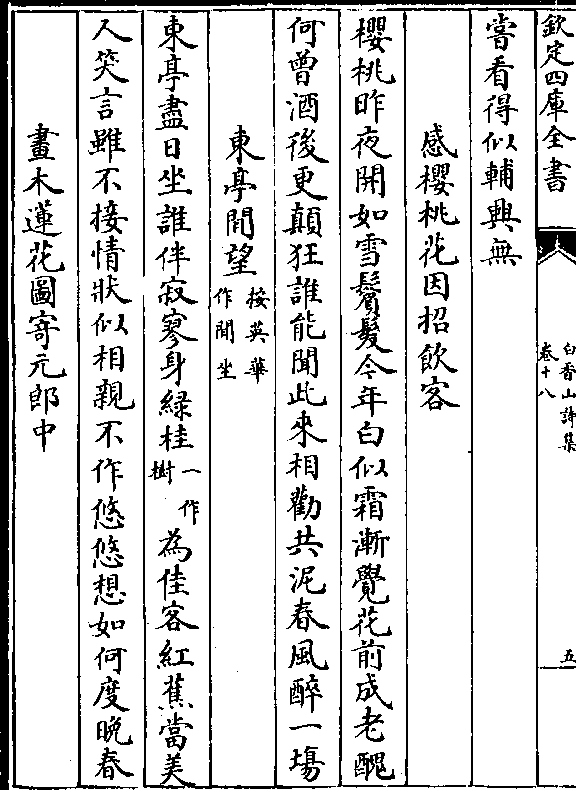 欽定四庫全書
白香山詩集
卷十八
五
嘗看得似輔興無
感櫻桃花因招飲客
櫻桃昨夜開如雪鬢髮今年白似霜漸覺花前成老醜
何曾酒後更顛狂誰能聞此來相勸共泥春風醉一塲
東亭閒望
按英華
作閒坐
東亭盡日坐誰伴寂寥身緑桂
一作
樹
為佳客紅蕉當美
人笑言雖不接情狀似相親不作悠悠想如何度晚春
畫木蓮花圖寄元郎中